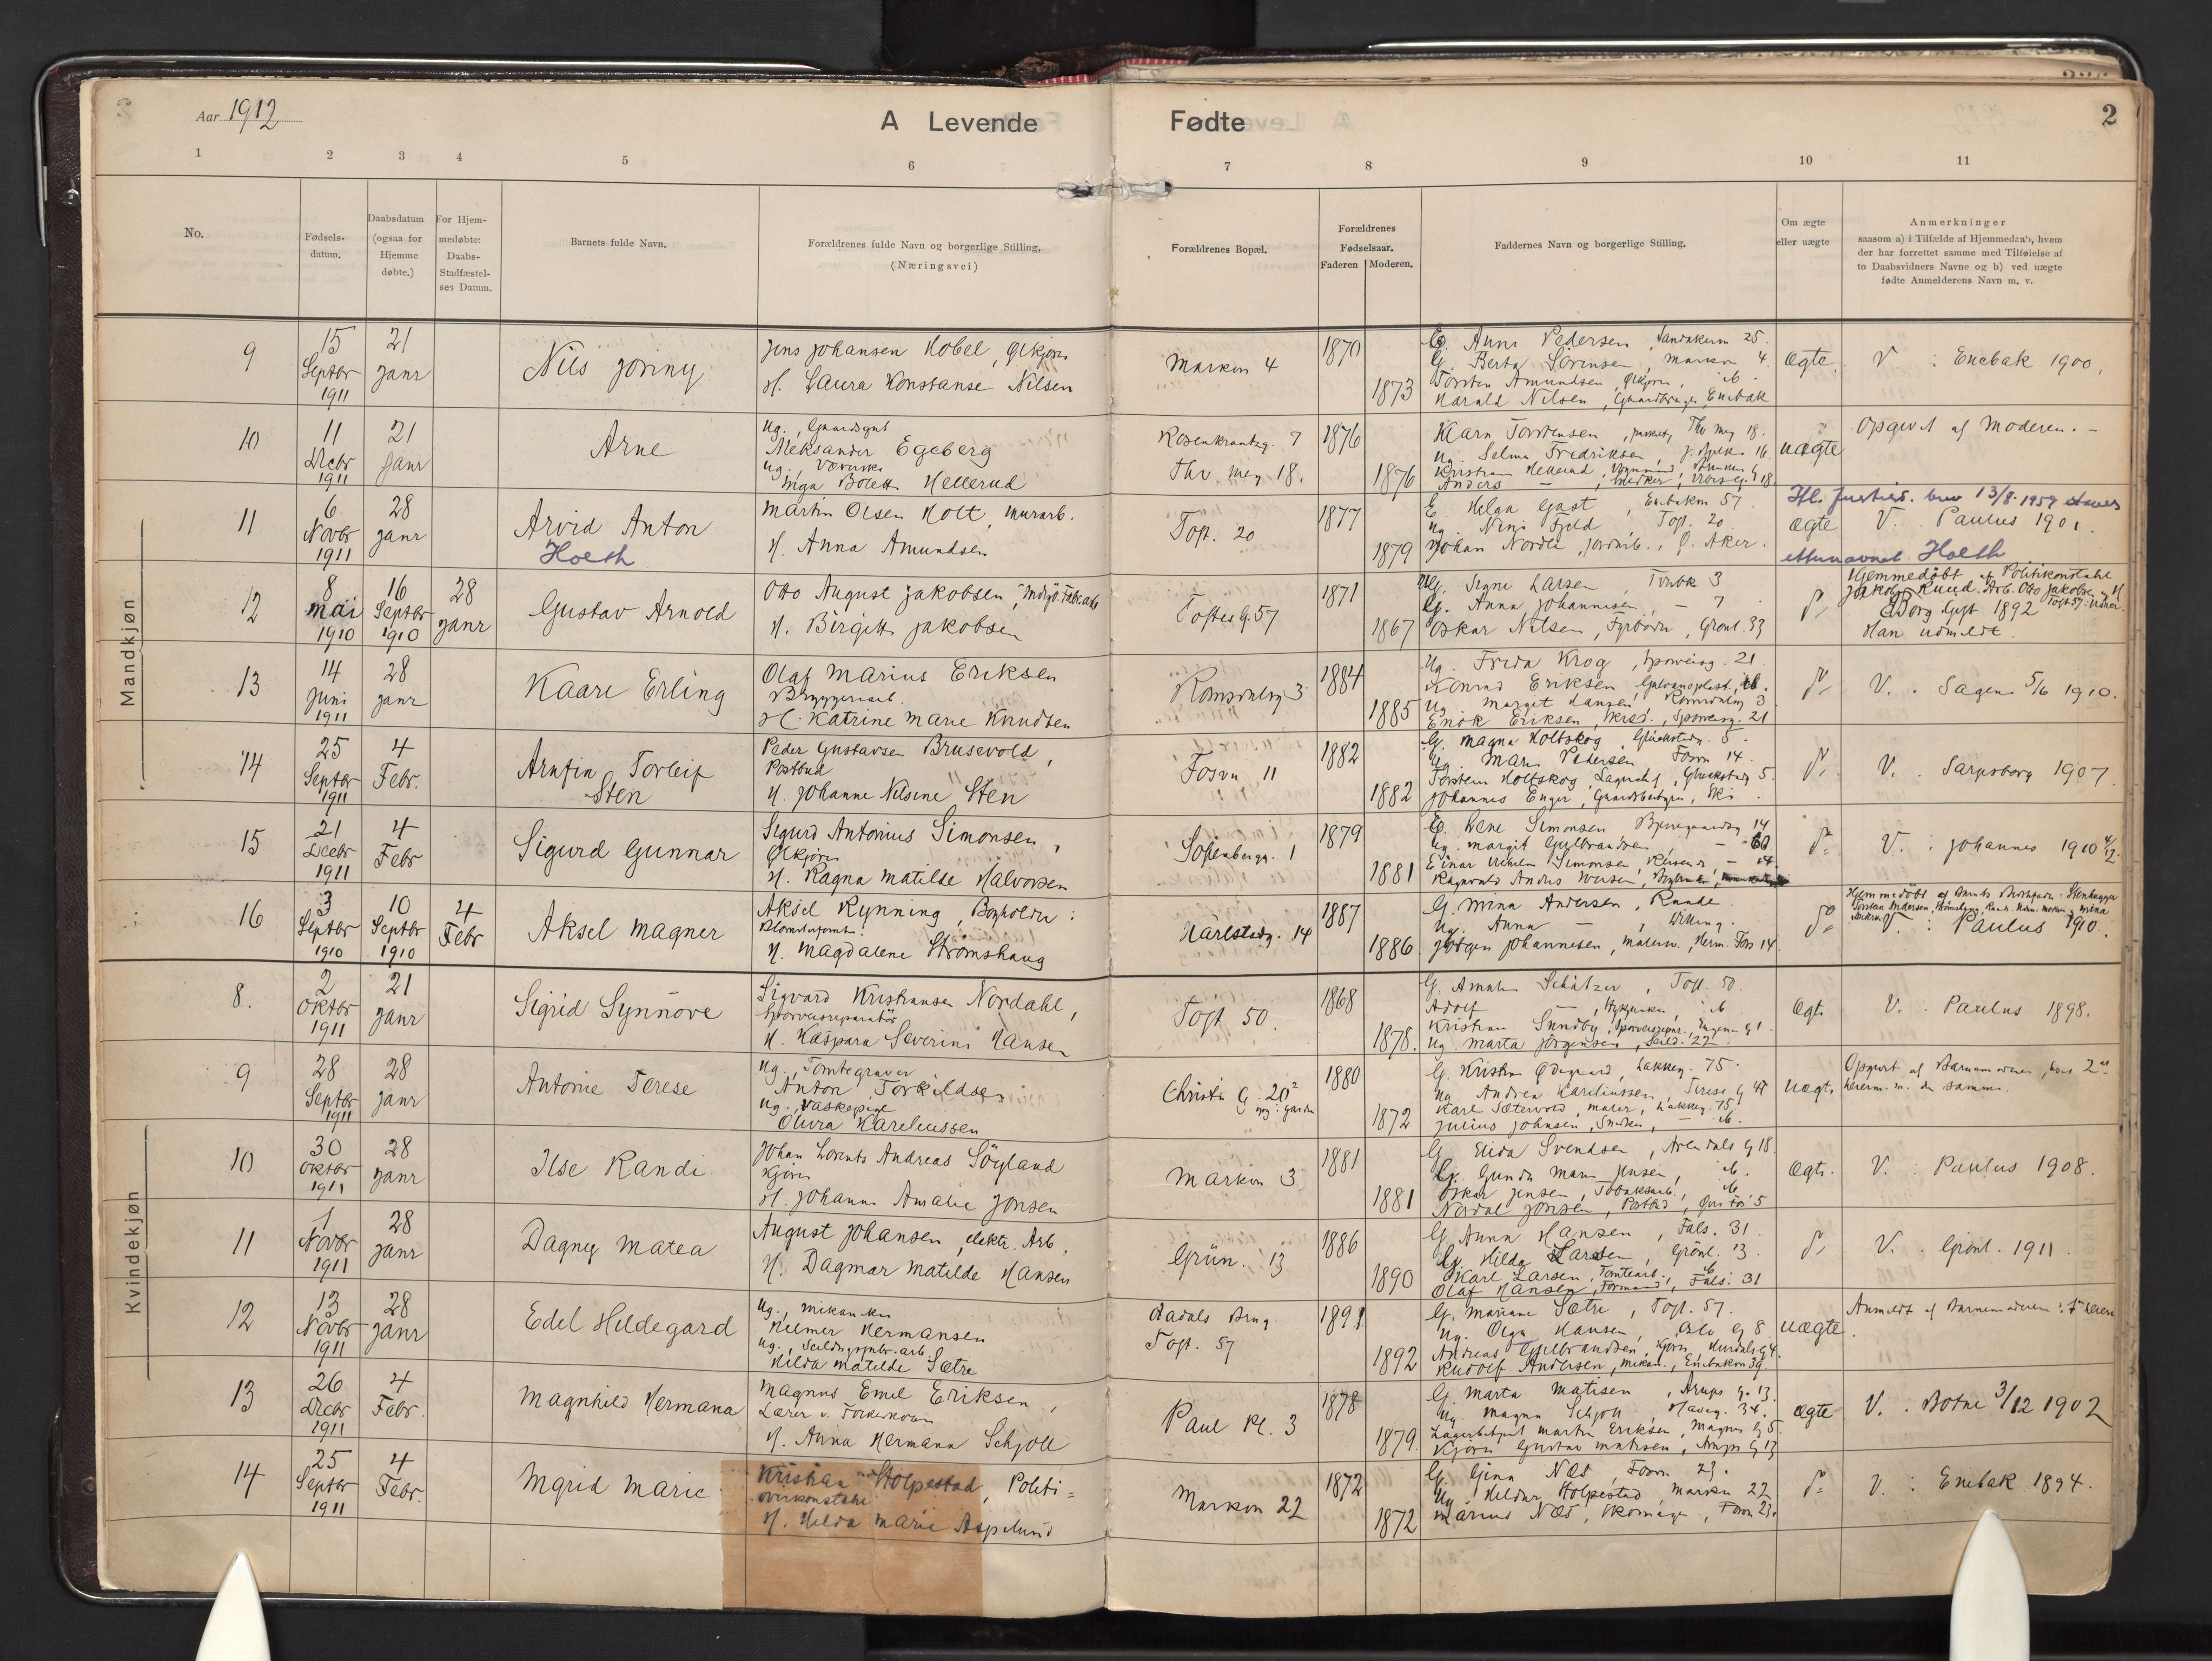 Aar 1912
A Levende Fødte
2
1 2 3 4 5 6 7 8 9 10 11
No.
Fødsels-
datum.
Daabsdatum
(ogsaa for
Hjemme
døbte.)
For Hjem-
medøbte:
Daabs-
Stadfæstel-
ses Datum.
Barnets fulde Navn.
Forældrenes fulde Navn og borgerlige Stilling.
(Næringsvei)
Forældrenes Bopæl.
Forældrenes
Fødselsaar.
Faderen Moderen.
Faddernes Navn og borgerlige Stilling.
Om ægte
eller uægte
Anmerkninger
saasom a) i Tilfælde af Hjemmedaab, hvem
der har forrettet samme med Tilføielse af
to Daabsvidners Navne og b) ved uægte
fødte Anmelderens Navn m. v.
Mandkjøn
9
15
Septbr
1911
21
Janr
Nils
Jens Johansen Kobel, Ølkjører
H. Laura Konstanse Nilsen
Markvn 4
1870
1873
G. Anne Pedersen, Sandakervn 25.
G. Berta Sørensen, Markvn 4.
Torsten Amundsen, Ølkjører, ib.
Harald Nilsen, Gaardbruger, Enebak
ægte.
V : Enebak 1900.
10
11
Decbr
1911
21
Janr
Arne
Ug., Gaardsgut
Aleksander Egeberg
Ug., Væverske
Inga Bolette Hellerud
Rosenkrantzg. 7
Thv. Mey 18.
1876
1876
Karn Torstensen, Thv Mey 18.
Ug. Selma Fredriksen,
Kristian Hellerud,
Anders
uægte
Opgivet af Moderen. -
11
6
Novbr
1911
28
Janr
Arvid Anton
Hoeth
Martin Olsen Holt, Murarb.
H. Anna Amundsen
Toft. 20
1877
1879
E. Helga Gast, Enebakvn 57.
Ug. Nini Fjeld, Toft. 20
Johan Nordli, Jordarb., Ø. Aker.
ægte
Hfl. Justisd. brev 13/8-1959 atater
V. Paulus 1901.
etternavnet Hoeth
12
8
Mai
1910
16
Septbr
1910
28
Janr
Gustav Arnold
Otto August Jakobsen,
H. Birgitte Jakobsen
Toftes G. 57
1871
1867
Ug. Signe Larsen, Tvebk 3
G. Anna Johannesen, - 7
Oskar Nilsen, Fyrbøder, Grønl. 33
Hjemmedøbt af Politikonstabel
Jakob Ruud. Arb. Otto Jakobsen
Borg. Gift 1892
Han udmeldt.
13
14
Juni
1911
28
Janr
Kaare Erling
Olaf Marius Eriksen
Bryggeriarb.
H. Katrine Marie Knudsen
Romsdalsg 3
1884
1885
Ug. Frida Krog, Sporveisg. 21.
Konrad Eriksen, Galvanoplast., ib.
Ug. Margit Hansen, Romsdalsg 3
Enok Eriksen, Sporveisg. 21
V. Sagene 5/6 1910.
14
25
Septbr
1911
4
Febr.
Arnfin Torleif
Sten
Peder Gustavsen Brusevold,
Postbud
H. Johanne Nilsine Sten
Fosvn 11
1882
1882
G. Magna Holtskog, Glückstadg. 5.
Ug. Marie Pedersen Fosvn 14.
Torstein Holtskog, Glückstadg 5.
Johannes Enger, Gaardbestyrer, Ski.
V. Sarpsborg 1907.
15
21
Decbr
1911
4
Febr
Sigurd Gunnar
Sigurd Antonius Simonsen,
Ølkjører
H. Ragna Matilde Halvorsen
Sofienbergg. 1
1879
1881
G. Lene Simonsen Bjerregaardsg 14
Ug. Margit Gulbrandsen, - 60
Einar Simonsen
Ragnvald Anders Iversen,
V. : Johannes 1910 4/12.
16
3
Septbr
1910
10
Septbr
1910
4
Febr
Aksel Magner
Aksel Rynning, Bogholder:
H. Magdalene Strømshaug
Karlstadg. 14
1887
1886
G. Mina Andersen, Raade.
Ug. Anna -
Jørgen Johannesen, Malersv., Herm. Foss 14.
V. : Paulus 1910.
Kvindekjøn
8.
2
Oktbr
1911
21
Janr
Sigrid Synnøve
Sigvard Kristiansen Nordahl,
Sporveisreparatør
H. Kaspara Severine Hansen
Toft 50.
1868
1878.
G. Amalie Schätzer, Toft. 50.
Adolf - , ib
Kristian Sundby, Sporveisrepar., Eugenies G 1.
Ug. Marta Jørgensen, Seild. 22.
ægt.
V. : Paulus 1898.
9
28
Septbr
1911
28
Janr
Antonie Terese
Ug., Tomtegraver
Anton Torkildsen
Ug., Vaskepige
Olivia Kareliussen
Christies G. 20²
1880
1872
G. Kristin Ødegaard, Lakkeg. 75.
Ug. Andrea Kareliussen, Terese G
Karl Sætervold, Maler, Lakkeg. 75.
Julius Johnsen, Snedker, - ib.
uægt.
Opgivet af Barnemoderen,
10
30
Oktbr
1911
28
Janr
Ilse Randi
Johan Lorents Andreas Søyland
Kjører
H. Johanne Amalie Jonsen
Markvn 3
1881
1881
G. Elida Svendsen, Arendals G 18.
G. Gunda Marie Jensen, ib.
Oskar Jensen, Tobaksarb., ib
Nordal Jonsen, Postbud, Øvre Fos 5
ægte.
V. : Paulus 1908.
11
1
Novbr
1911
28
Janr
Dagny Matea
August Johansen, elektr. Arb.
H. Dagmar Matilde Hansen
Grün. 13
1886
1890
G. Anna Hansen, Fals. 31
G. Hilda Larsen, Grönl. 13.
Karl Larsen, Tomtearb., ib
Olaf Hansen, Formand, Fals. 31
V. : Grønl. 1911.
12
13
Novbr
1911
28
Janr
Edel Hildegard
Ug., Mekaniker
Hilmer Hermansen
Ug., Seildugsfabr.arb.
Hilda Matilde Sætre
Aadals Brug.
Toft. 57
1891
1892
G. Mariane Sætre, Toft. 57.
Ug. Olga Hansen, Oslo G 8
Andreas Gulbrandsen, Kjører, Hurdals G 4.
Rudolf Andersen, Mekan., Enebakvn 39.
uægte.
Anmeldt af Barnemoderen:
13
26
Decbr
1911
4
Febr.
Magnhild Hermana
Magnus Emil Eriksen,
Lærer v. Folkeskolen
H. Anna Hermana Schjoll
Paul Pl. 3
1878
1879.
G. Marta Matisen, Arups G. 13.
Ug. Magna Schjoll, Haveg. 34.
Lagerbetjent Martin Eriksen, Magnus G 5.
Kjører Gustav Matisen, Arups G 13
ægte
V. : Botne 3/12 1902
14
25
Septbr
1911
4
Febr.
Ingrid Marie
Kristian Stolpestad, Politi=
overkonstabel
H. Hilda Marie Aspelund
Markvn 22
1872
1872
G. Gina Næs, Fosvn 23.
Ug. Hildur Stolpestad, Markvn 22
Marius Næs, Skomager, Fosvn 23.
V. : Enebak 1894.